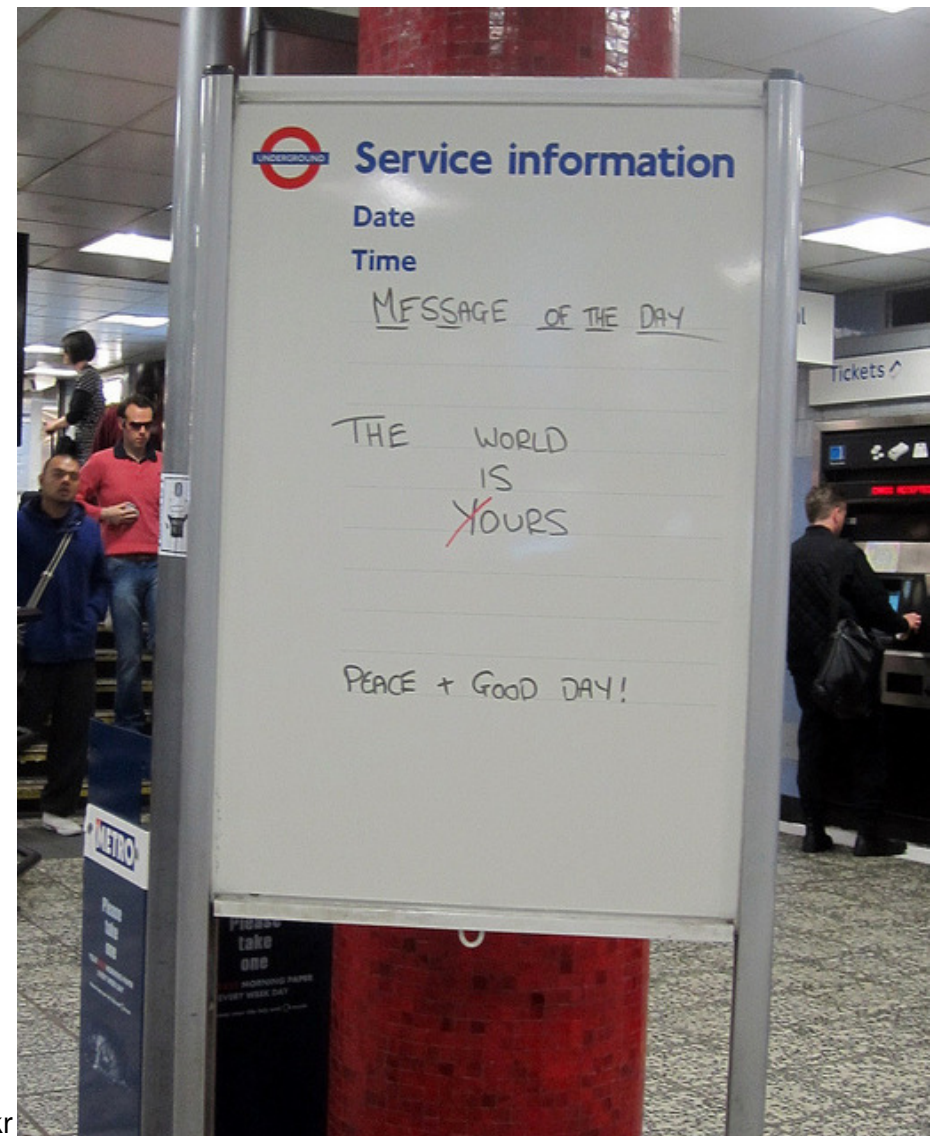 UNDERGROUND
Service information
Date
Time
MESSAGE OF THE DAY
THE WORLD
IS
YOURS
PEACE + GOOD DAY!
Tickets
METRO
Please
take
one
Please
take
one
MORNING PAPER
EVERY WEEK DAY
kr